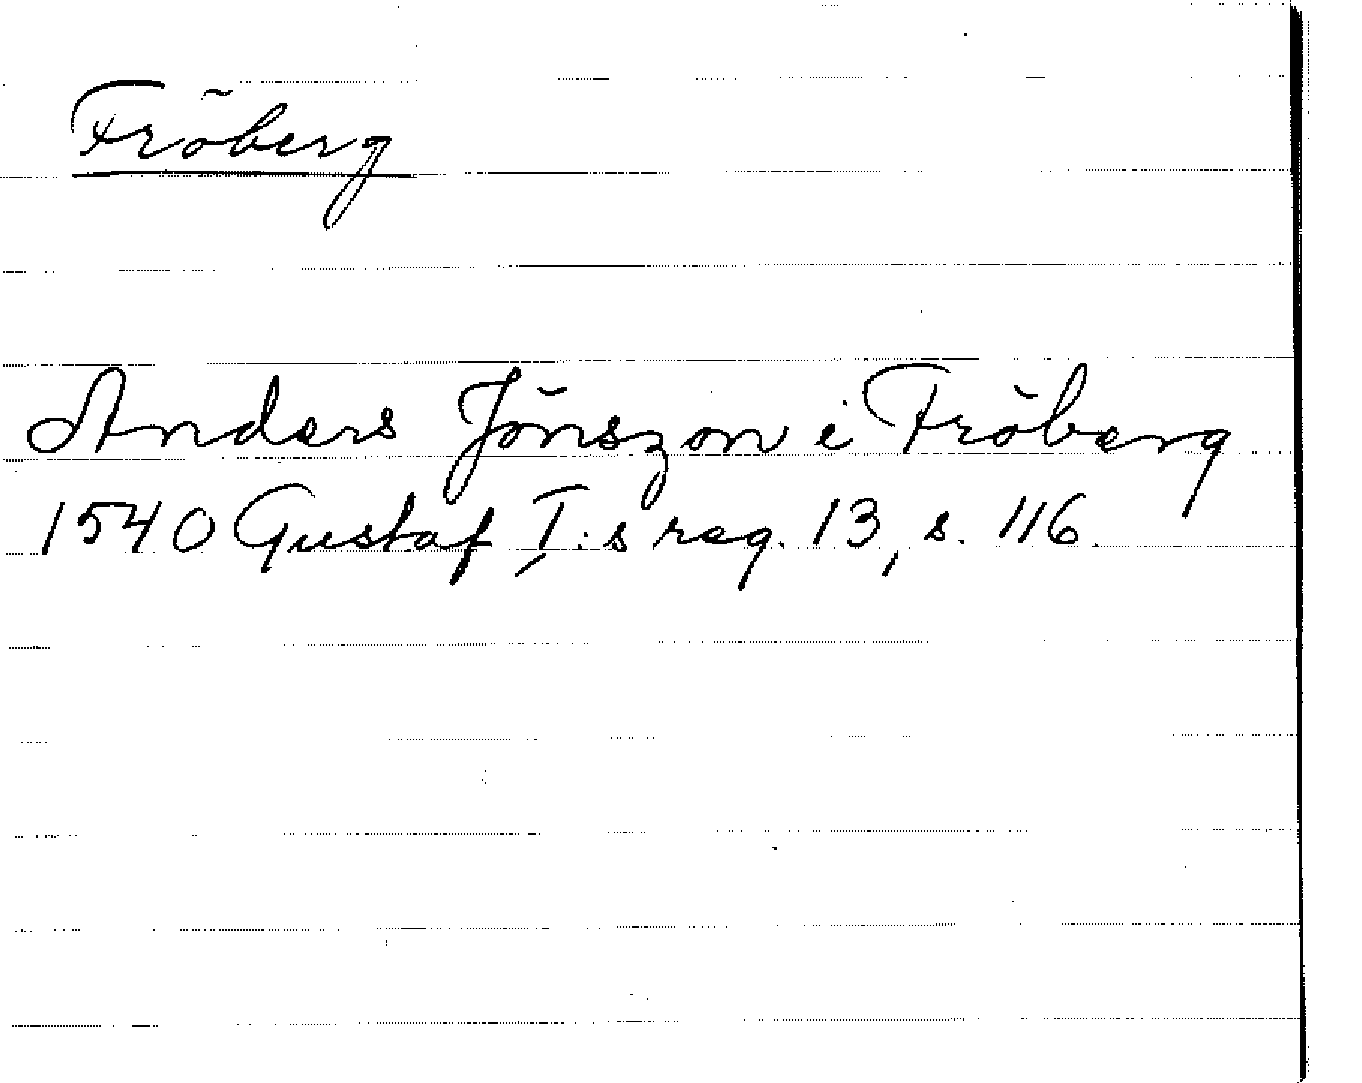 Fröberg
Anders Jönszon i Fröberg
1540 Gustaf I:s reg. 13, s. 116.